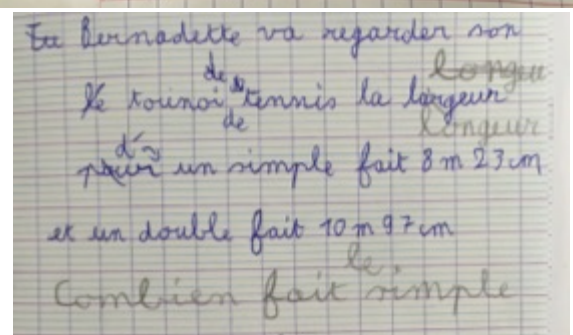 Bernadette va regarder son
longueur
de
le tounoi tennis la largeur
de longueur
d'
pour un simple fait 8 m 23 cm
et un double fait 10 m 97 cm
le
Combien fait simple